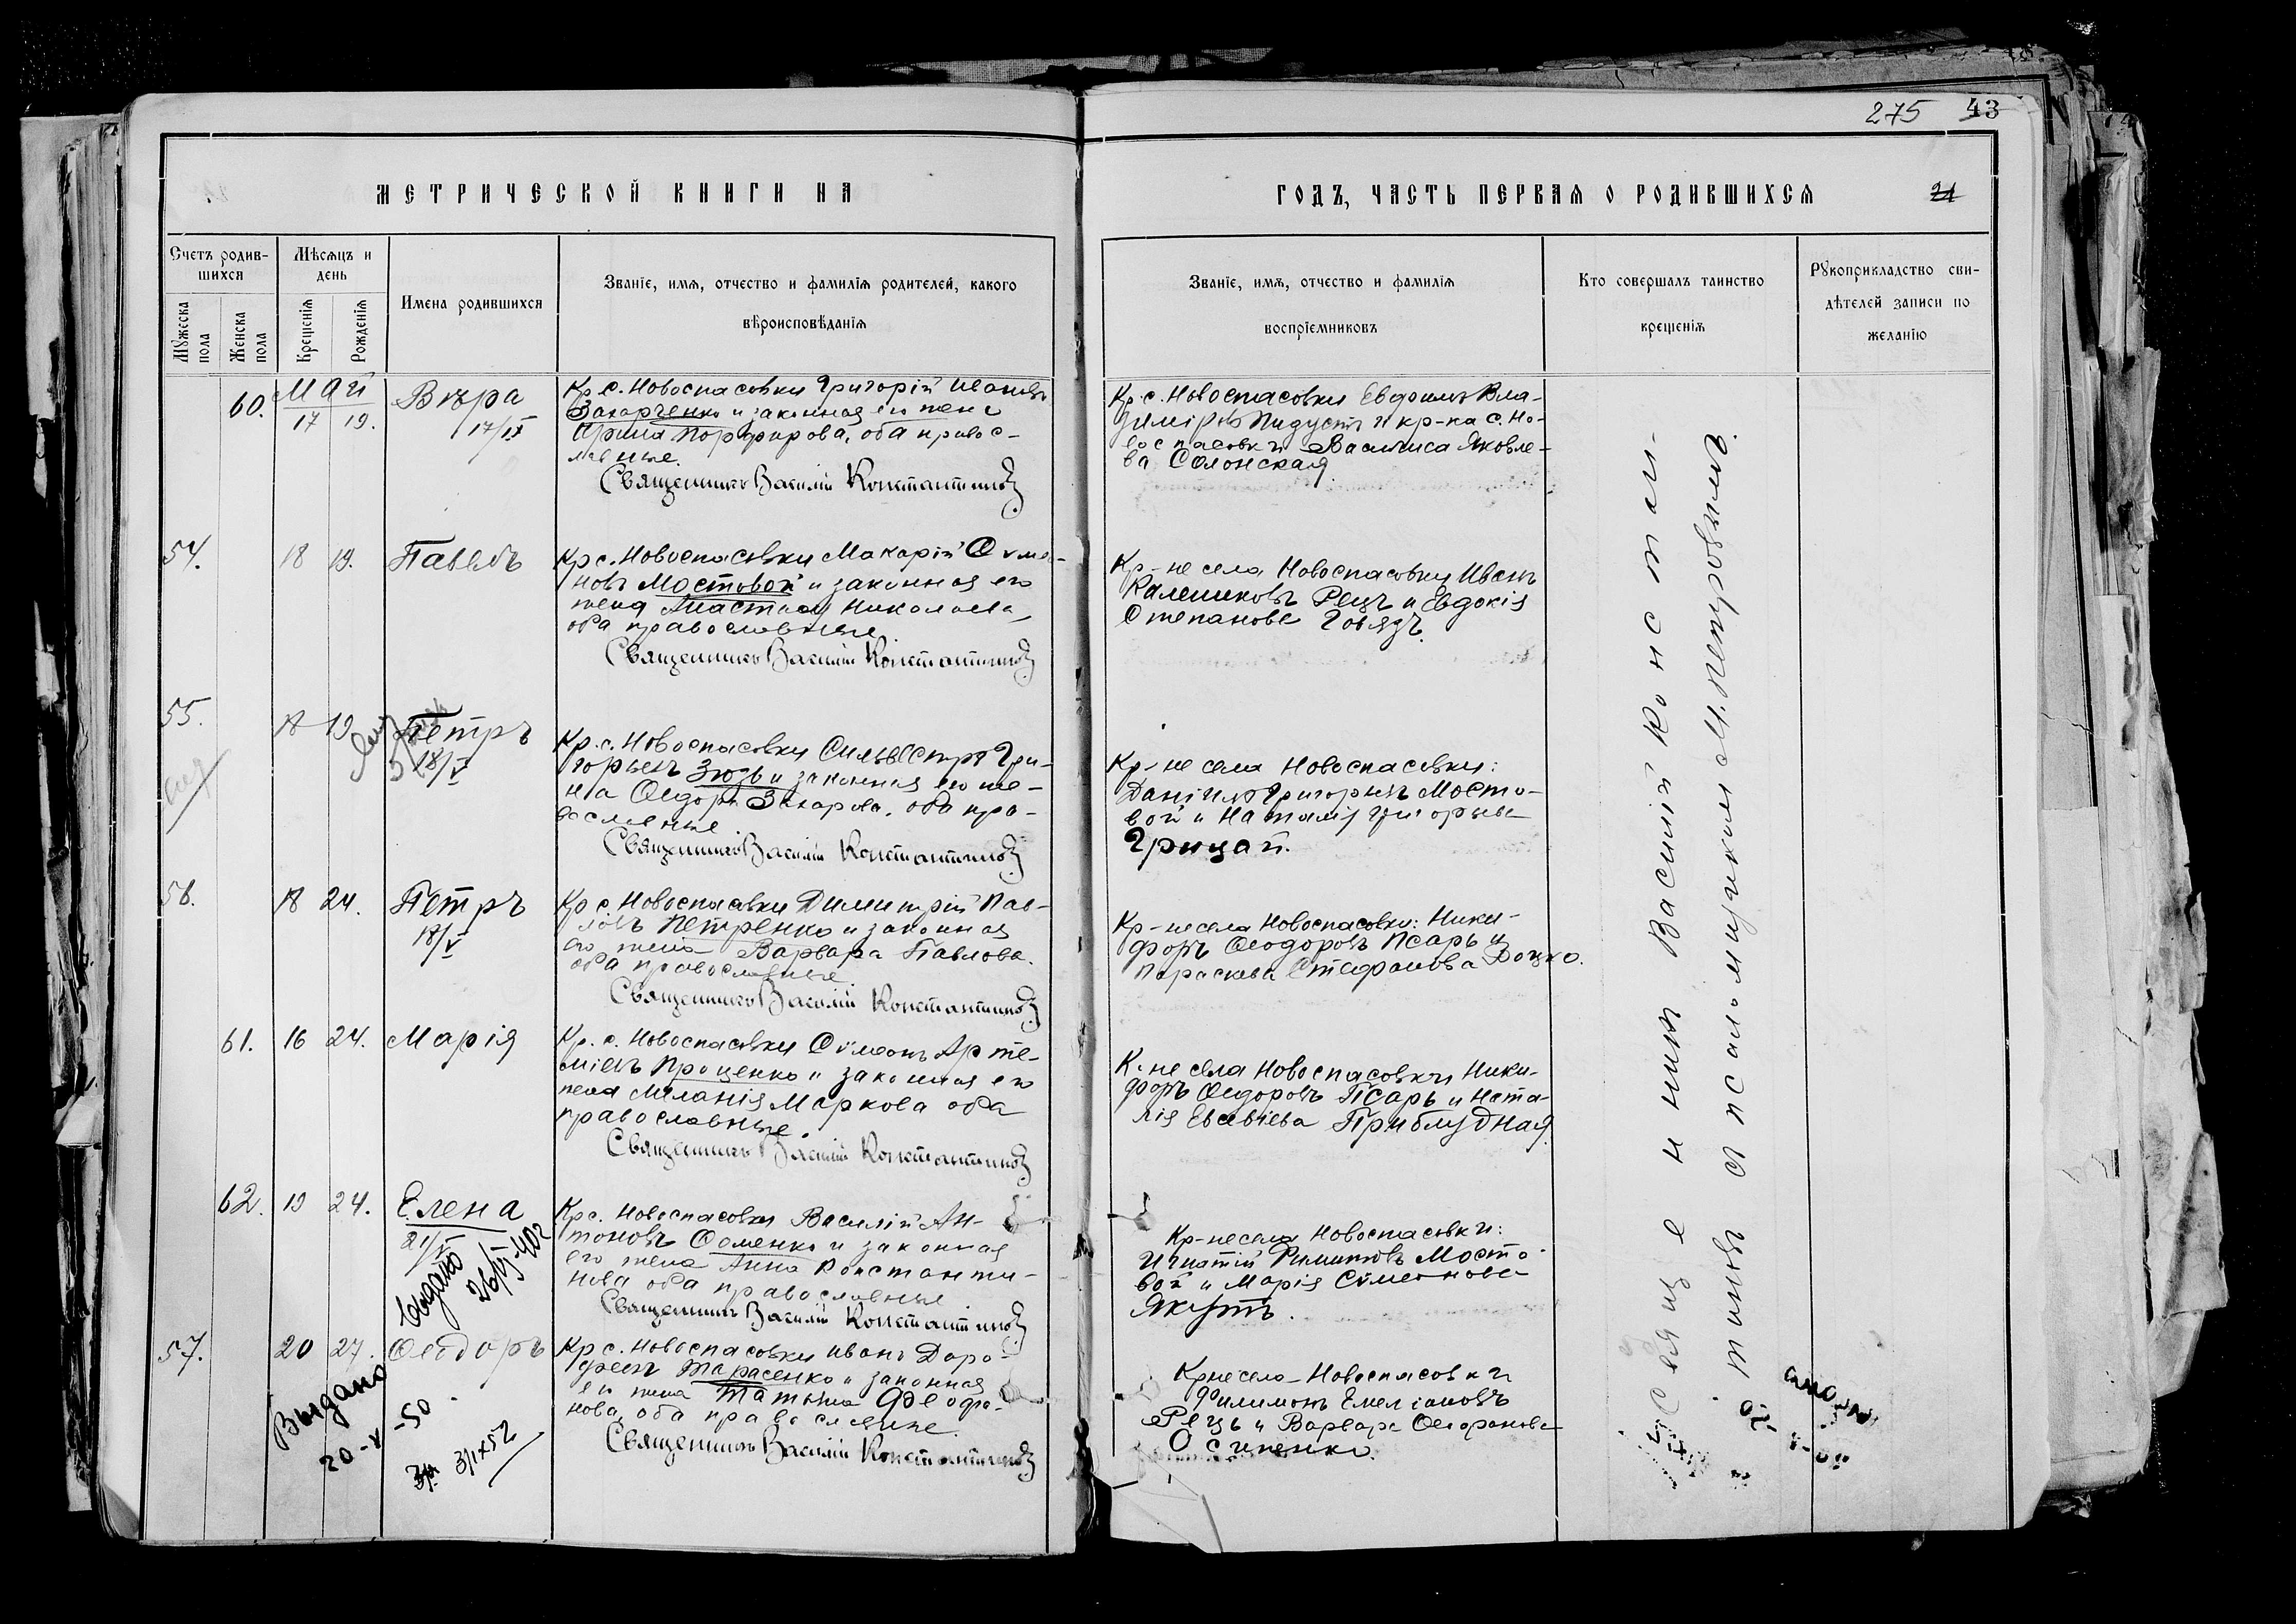 275 43
МЕТРИЧЕСКОЙ КНИГИ НА
ГОДЪ, ЧАСТЬ ПЕРВАЯ О РОДИВШИХСЯ
21
Счетъ родив-
шихся
Мужеска пола
Женска пола
Мѣсяцъ и
день
Крещенія
Рожденія
Имена родившихся
Званіе, имя, отчество и фамилія родителей, какого
вѣроисповѣданія
Званіе, имя, отчество и фамилія
воспріемниковъ
Кто совершалъ таинство
крещенія
Рукоприкладство сви-
дѣтелей записи по
желанію
Май
60. 17 19. Вѣра
17/IX
Кр. с. Новоспасовки Григорій Ивановъ
Захарченко и законная его жена
Ирина Порфирова, оба правос-
лавные.
Священникъ Василій Константиновъ
Кр. с. Новоспасовки Евдокимъ Вла-
диміровъ Пидустъ и кр-ка с. Но-
воспасовки Василиса Яковле-
ва Солонская
54. 18 19. Павелъ
Кр с. Новоспасовки Макарій Сѵмео-
новъ Мостовой и законная его
жена Анастасія Николаева
оба православные.
Священникъ Василій Константиновъ
Кр-не села Новоспасовки Иванъ
Калениковъ Рецъ и Евдокія
Степанова Говядъ.
55. 18 19 Петръ
18/V
Кр. с. Новоспасовки Сильвестръ Гри-
горьевъ Зюзь и законная его же-
на Ѳеодора Захарова, оба пра-
вославные
Священникъ Василій Константиновъ
Кр-не села Новоспасовки:
Даніилъ Григорьевъ Мосто-
вой и Наталія Григорьева
Грицай.
56. 18 24. Петръ
18/V
Кр с. Новоспасовки Димитрій Пав-
ловъ Петренко и законная
его жена Варвара Павлова.
оба православные
Священникъ Василій Константиновъ
Кр-не села Новоспасовки: Ники-
форъ Ѳеодоровъ Псарь и
Параскева Стефанова Доцко.
61. 16 24. Марія
Кр. с. Новоспасовки Сѵмеонъ Арте-
міевъ Проценко и законная его
жена Меланія Маркова оба
православные.
Священникъ Василій Константиновъ
К-не села Новоспасовки Ники-
форъ Ѳеодоровъ Псарь и Ната-
лія Евсевіева Приблудная
62. 19 24. Елена
21/V
Выдано
26/VI 402
Кр с. Новоспасовки Василій Ан-
тоновъ Ѳоменко и законная
его жена Анна Константи-
нова оба православные
Священникъ Василій Константиновъ
Кр-не села Новоспасовки:
Игнатій Мосто-
вой и Марія Сѵмеонова
Якутъ.
57. 20 27. Ѳеодоръ
Выдано
20-V-50
3/IX52
Кр с. Новоспасовки Иванъ Доро-
феевъ Тарасенко и законная
его жена Татьяна Феофа-
нова, оба православные.
Священникъ Василій Константиновъ
Кр-не села Новоспасовки
Филимонъ Емеліановъ
Рецъ и Варвара Ѳеофанова
Осипенко.
Священникъ Василій Констан-
тиновъ и псаломщикомъ М. Петровымъ.